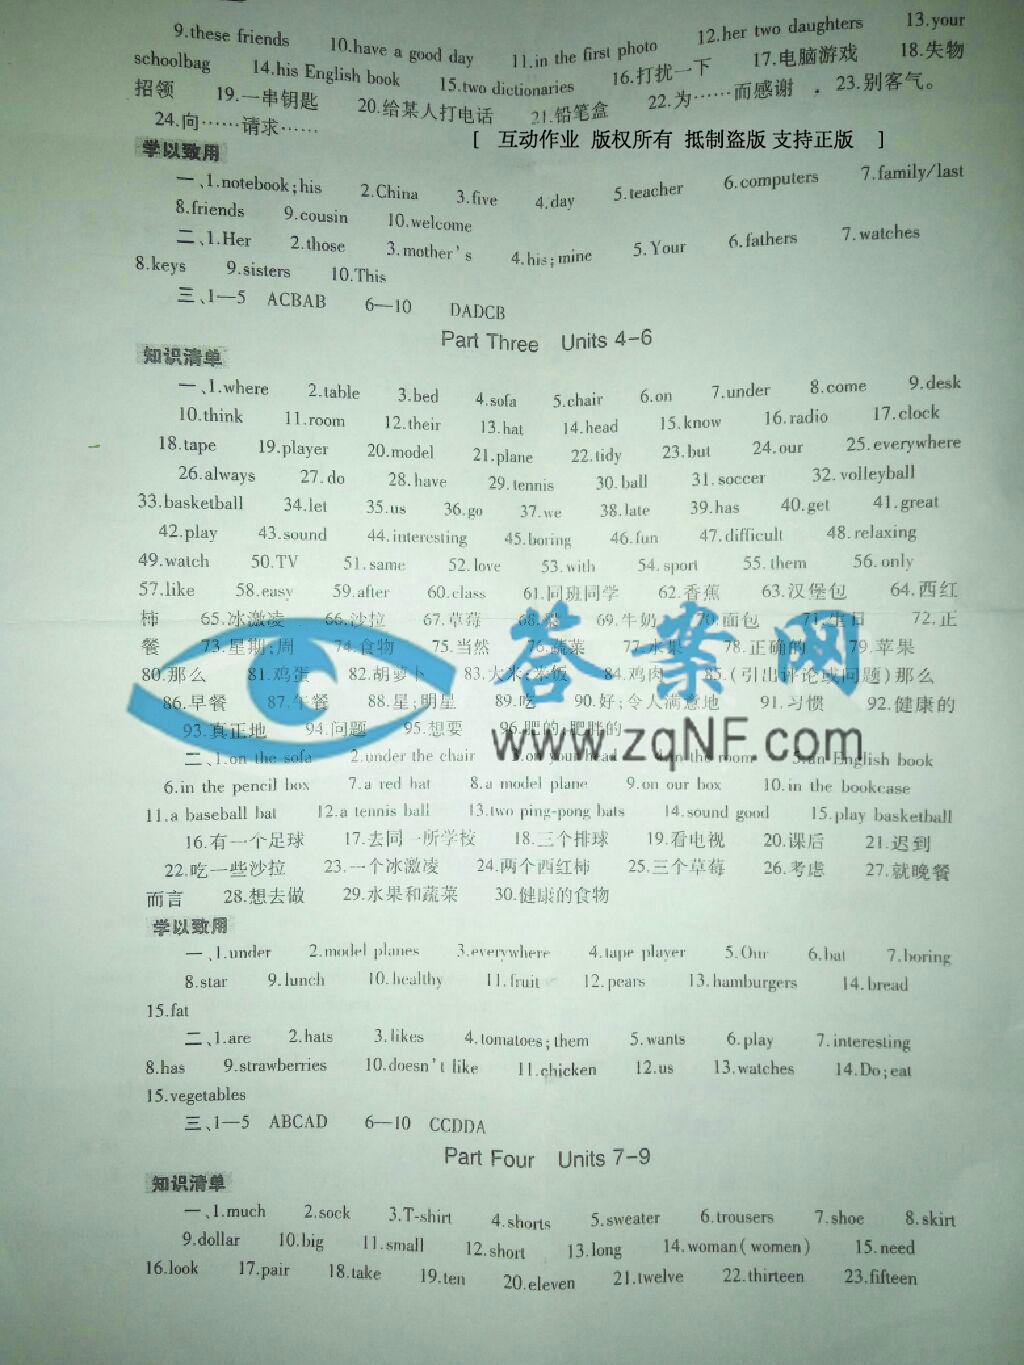 9.these friends 10.have a good day 11.in the first photo 12.her two daughters 13.your
schoolbag 14.his English book 15.two dictionaries 16.打扰一下 17.电脑游戏 18.失物
招领 19.一串钥匙 20.给某人打电话 21.铅笔盒 22.为……而感谢 23.别客气。
24.向……请求……
[ 互动作业 版权所有 抵制盗版 支持正版 ]
学以致用
一、1.notebook;his 2.China 3.five 4.day 5.teacher 6.computers 7.family/last
8.friends 9.cousin 10.welcome
二、1.Her 2.those 3.mother's 4.his;mine 5.Your 6.fathers 7.watches
8.keys 9.sisters 10.This
三、1—5 ACBAB 6—10 DADCB
Part Three Units 4-6
知识清单
一、1.where 2.table 3.bed 4.sofa 5.chair 6.on 7.under 8.come 9.desk
10.think 11.room 12.their 13.hat 14.head 15.know 16.radio 17.clock
18.tape 19.player 20.model 21.plane 22.tidy 23.but 24.our 25.everywhere
26.always 27.do 28.have 29.tennis 30.ball 31.soccer 32.volleyball
33.basketball 34.let 35.us 36.go 37.we 38.late 39.has 40.get 41.great
42.play 43.sound 44.interesting 45.boring 46.fun 47.difficult 48.relaxing
49.watch 50.TV 51.same 52.love 53.with 54.sport 55.them 56.only
57.like 58.easy 59.after 60.class 61.同班同学 62.香蕉 63.汉堡包 64.西红
柿 65.冰激凌 66.沙拉 67.草莓 68. 69.牛奶 70.面包 71.生日 72.正
餐 73.星期;周 74.食物 75.当然 76.蔬菜 77.水果 78.正确的 79.苹果
80.那么 81.鸡蛋 82.胡萝卜 83.大米;米饭 84.鸡肉 85.(引出评论或问题)那么
86.早餐 87.午餐 88.星;明星 89.吃 90.好;令人满意地 91.习惯 92.健康的
93.真正地 94.问题 95.想要 96.肥的;肥胖的
答案网
www.zqNF.com
二、1.on the sofa 2.under the chair 3.on your head 4.in the room 5.an English book
6.in the pencil box 7.a red hat 8.a model plane 9.on our box 10.in the bookcase
11.a baseball bat 12.a tennis ball 13.two ping-pong bats 14.sound good 15.play basketball
16.有一个足球 17.去同一所学校 18.三个排球 19.看电视 20.课后 21.迟到
22.吃一些沙拉 23.一个冰激凌 24.两个西红柿 25.三个草莓 26.考虑 27.就晚餐
而言 28.想去做 29.水果和蔬菜 30.健康的食物
学以致用
一、1.under 2.model planes 3.everywhere 4.tape player 5.Our 6.bat 7.boring
8.star 9.lunch 10.healthy 11.fruit 12.pears 13.hamburgers 14.bread
15.fat
二、1.are 2.hats 3.likes 4.tomatoes;them 5.wants 6.play 7.interesting
8.has 9.strawberries 10.doesn't like 11.chicken 12.us 13.watches 14.Do;eat
15.vegetables
三、1—5 ABCAD 6—10 CCDDA
Part Four Units 7-9
知识清单
一、1.much 2.sock 3.T-shirt 4.shorts 5.sweater 6.trousers 7.shoe 8.skirt
9.dollar 10.big 11.small 12.short 13.long 14.woman(women) 15.need
16.look 17.pair 18.take 19.ten 20.eleven 21.twelve 22.thirteen 23.fifteen